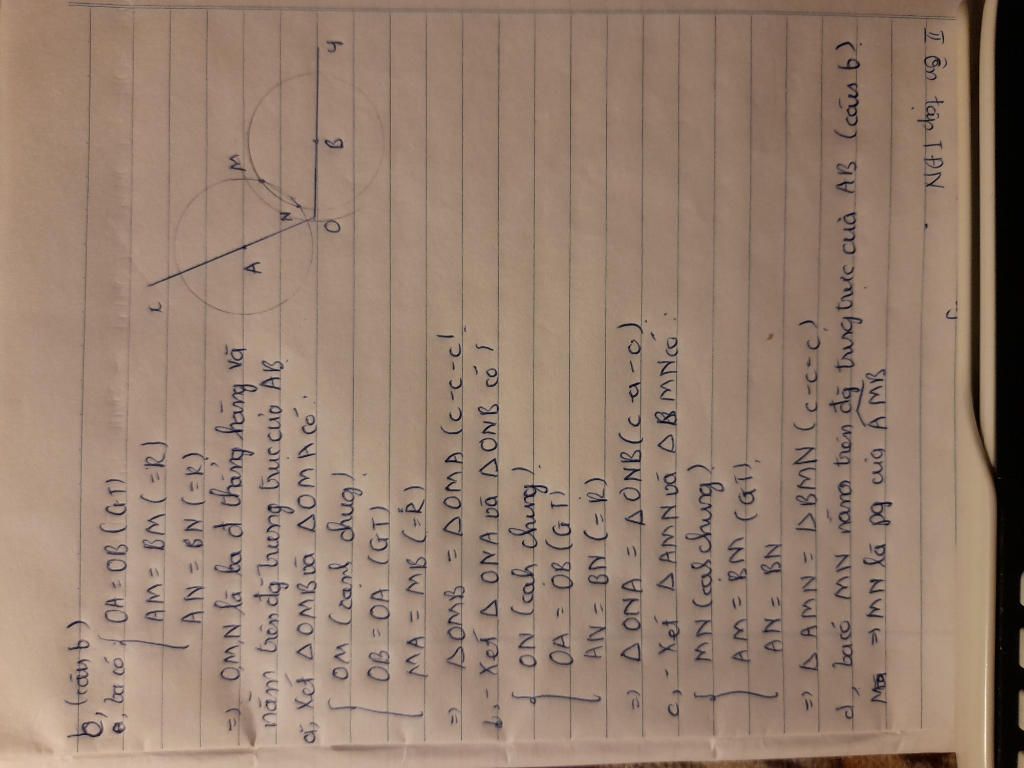 b, (câu b)
e, ta có { OA = OB (GT)
AM = BM (=R)
AN = BN (=R)
=> O,M,N là ba đ thẳng hàng và
nằm trên đg trung trực của AB
a, Xét ΔOMB và ΔOMA có:
OM (cạnh chug)
OB = OA (GT)
MA = MB (=R)
=> ΔOMB = ΔOMA (c-c-c)
b, - Xét ΔONA và ΔONB có:
ON (cạh chung)
OA = OB (GT)
AN = BN (=R)
=> ΔONA = ΔONB (c-a-c)
c, - Xét ΔAMN và ΔBMN có:
MN (cạh chung)
AM = BM (GT)
AN = BN
=> ΔAMN = ΔBMN (c-c-c)
d, ta có MN nằm trên đg trung trực của AB (câu b)
=> MN là pg của AMB
x
A
M
N
O
B
y
II Ôn tập